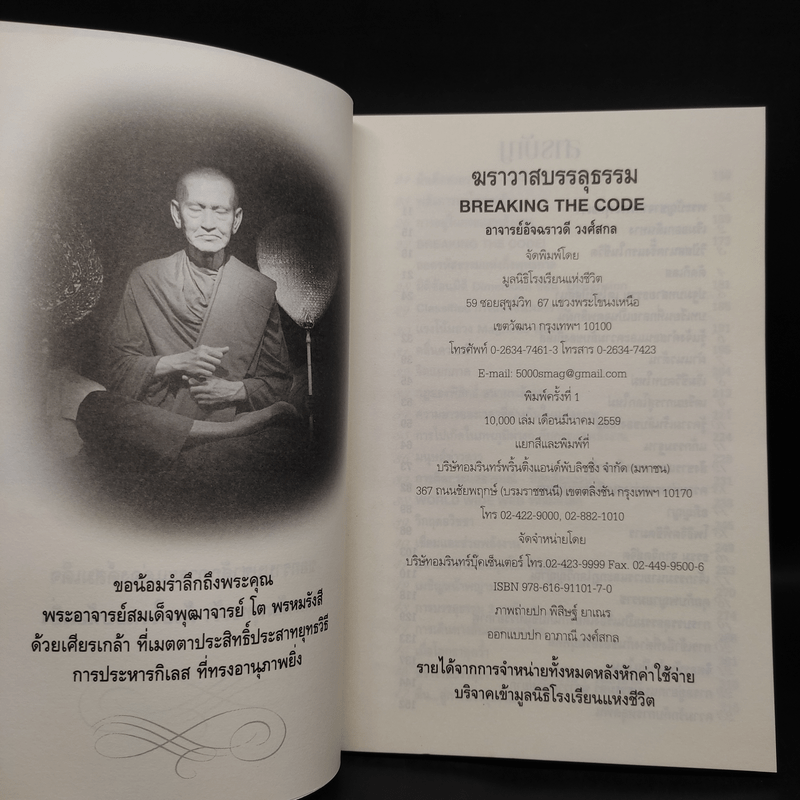 ขอน้อมรำลึกถึงพระคุณ
พระอาจารย์สมเด็จพุฒาจารย์ โต พรหมรังสี
ด้วยเศียรเกล้า ที่เมตตาประสิทธิ์ประสาทยุทธวิธี
การประหารกิเลส ที่ทรงอานุภาพยิ่ง
สารบัญ
ฆราวาสบรรลุธรรม
BREAKING THE CODE
อาจารย์อัจฉราวดี วงศ์สกล
จัดพิมพ์โดย
มูลนิธิโรงเรียนแห่งชีวิต
59 ซอยสุขุมวิท 67 แขวงพระโขนงเหนือ
เขตวัฒนา กรุงเทพฯ 10100
โทรศัพท์ 0-2634-7461-3 โทรสาร 0-2634-7423
E-mail: 5000smag@gmail.com
พิมพ์ครั้งที่ 1
10,000 เล่ม เดือนมีนาคม 2559
แยกสีและพิมพ์ที่
บริษัทอมรินทร์พริ้นติ้งแอนด์พับลิชชิ่ง จำกัด (มหาชน)
367 ถนนชัยพฤกษ์ (บรมราชชนนี) เขตตลิ่งชัน กรุงเทพฯ 10170
โทร 02-422-9000, 02-882-1010
จัดจำหน่ายโดย
บริษัทอมรินทร์บุ๊คเซ็นเตอร์ โทร.02-423-9999 Fax. 02-449-9500-6
ISBN 978-616-91101-7-0
ภาพถ่ายปก พิสิษฐ์ ยาเณร
ออกแบบปก อาภาณี วงศ์สกล
รายได้จากการจำหน่ายทั้งหมดหลังหักค่าใช้จ่าย
บริจาคเข้ามูลนิธิโรงเรียนแห่งชีวิต